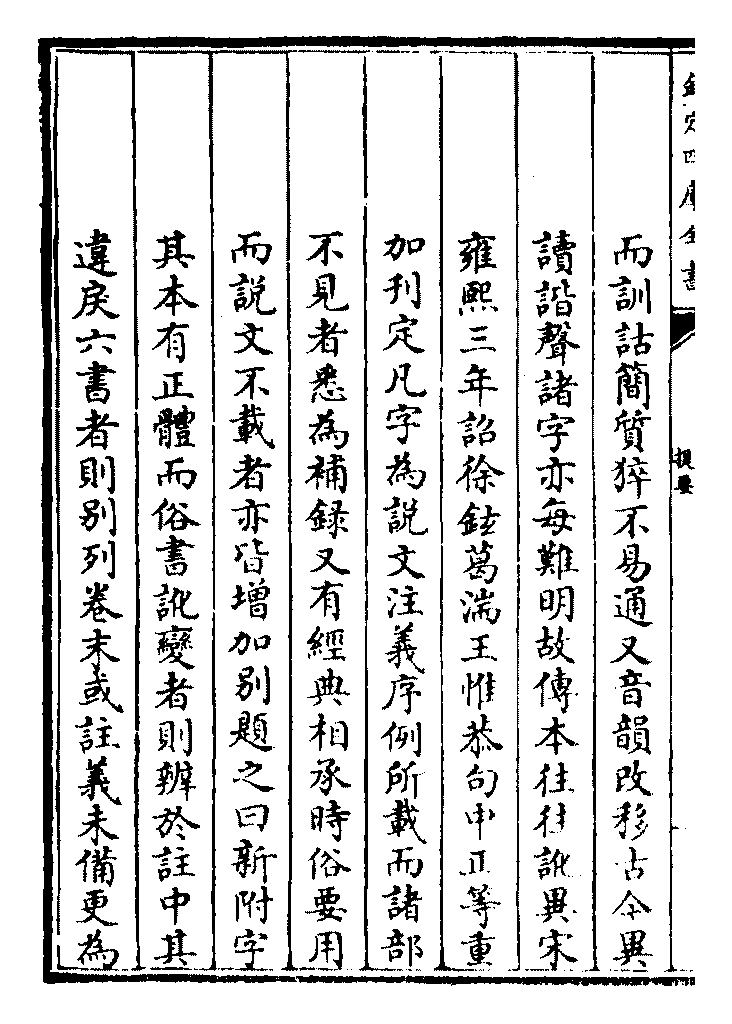 欽定四庫全書
提要
而訓詁簡質猝不易通又音韻改移古今異
讀諧聲諸字亦每難明故傳本往往訛異宋
雍熙三年詔徐鉉葛湍王惟恭句中正等重
加刊定凡字為說文注義序例所載而諸部
不見者悉為補録又有經典相承時俗要用
而説文不載者亦皆增加別題之曰新附字
其本有正體而俗書訛變者則辨於註中其
違戾六書者則别列卷末或註義未備更為